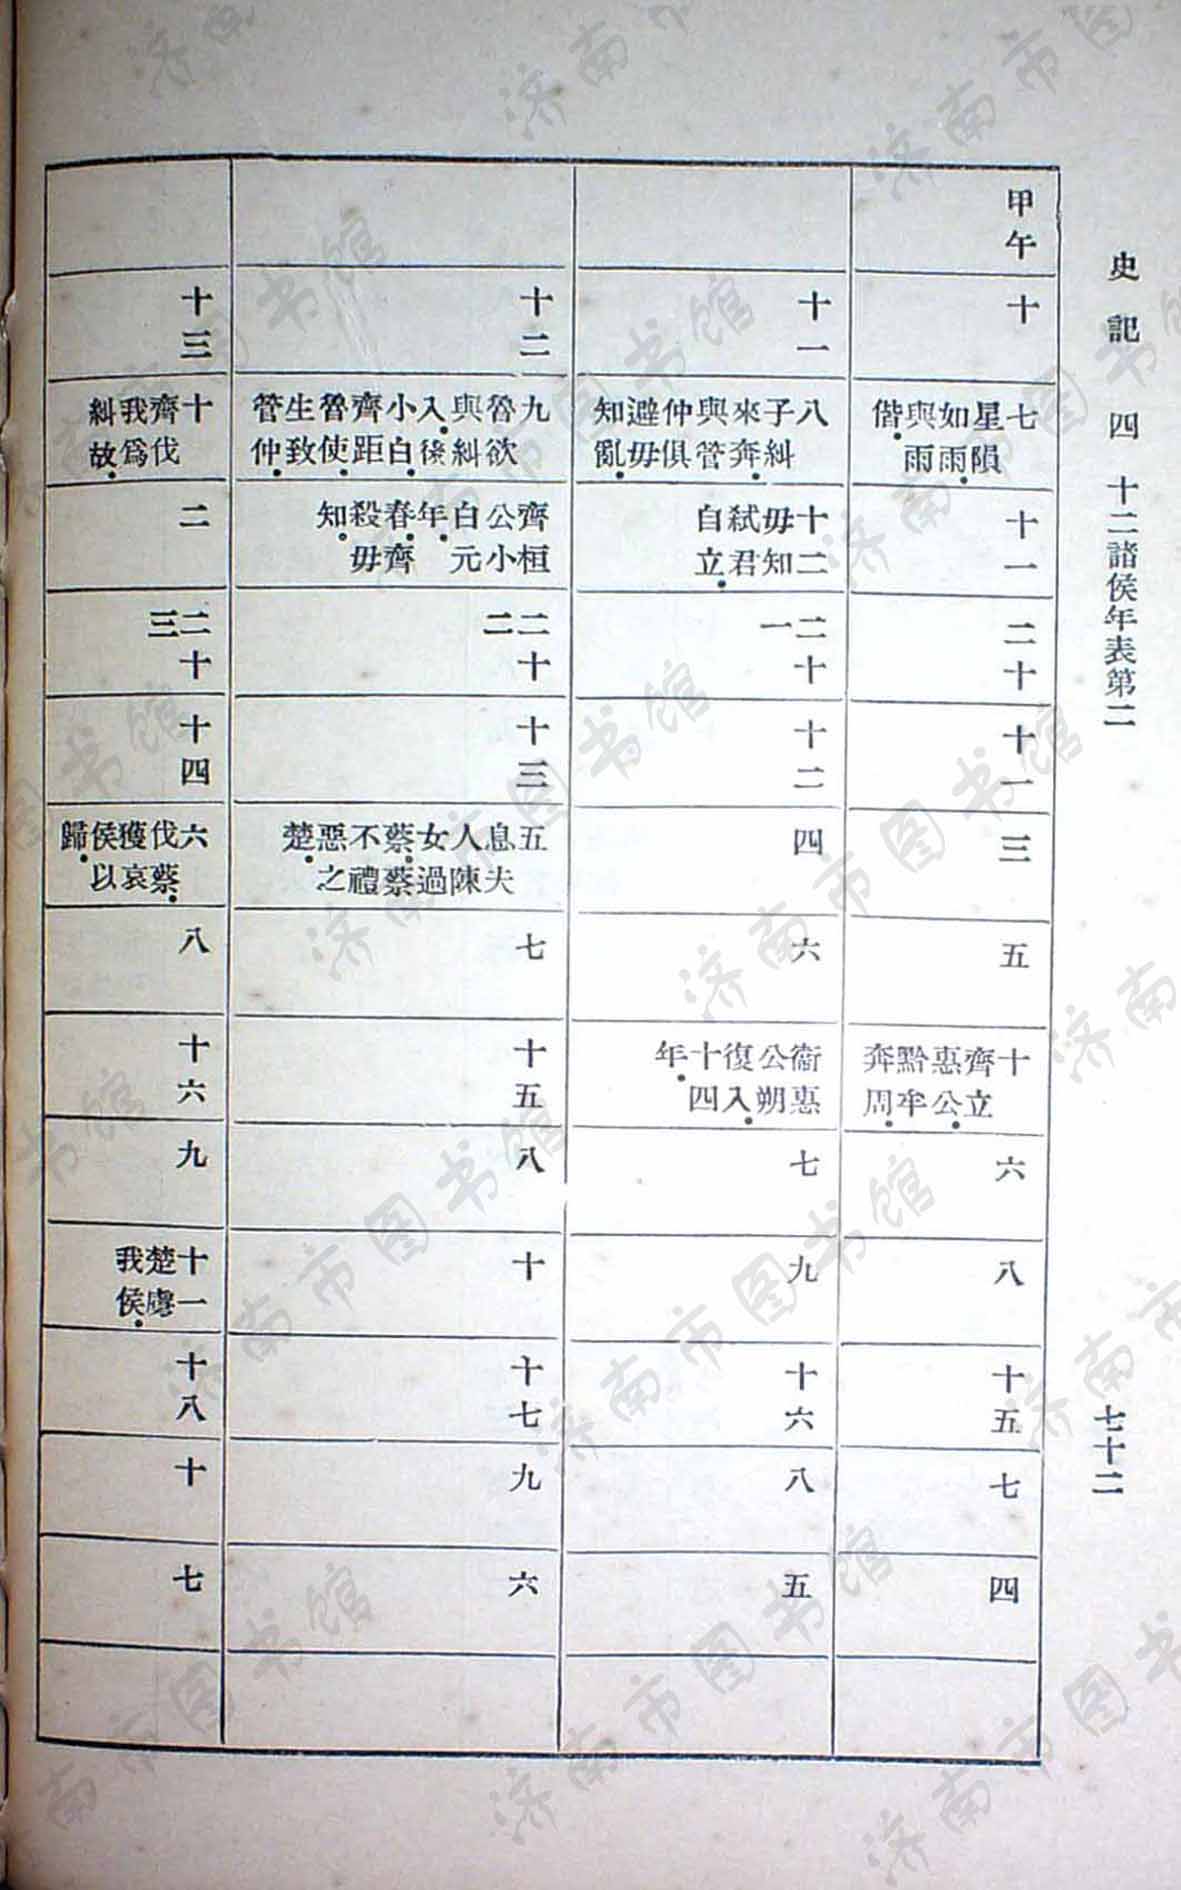 史記 四 十二諸侯年表第二 七十二
甲午
十
七星隕如雨與雨偕
十一
二十
十一
三
五
十齊立惠公黔牟奔周
六
八
十五
七
四
十一
八子糾來奔與管仲俱避毋知亂
十二毋知弒君自立
二十一
十二
四
六
衞惠公朔復入十四年
七
九
十六
八
五
十二
九魯欲與糾入後小白齊距魯使生致管仲
齊桓公小白元年春齊殺毋知
二十二
十三
五息夫人陳女過蔡蔡不禮惡之楚
七
十五
八
十
十七
九
六
十三
十齊伐我爲糾故
二
二十三
十四
六伐蔡獲哀侯以歸
八
十六
九
十一楚虜我侯
十八
十
七
济南市图书馆